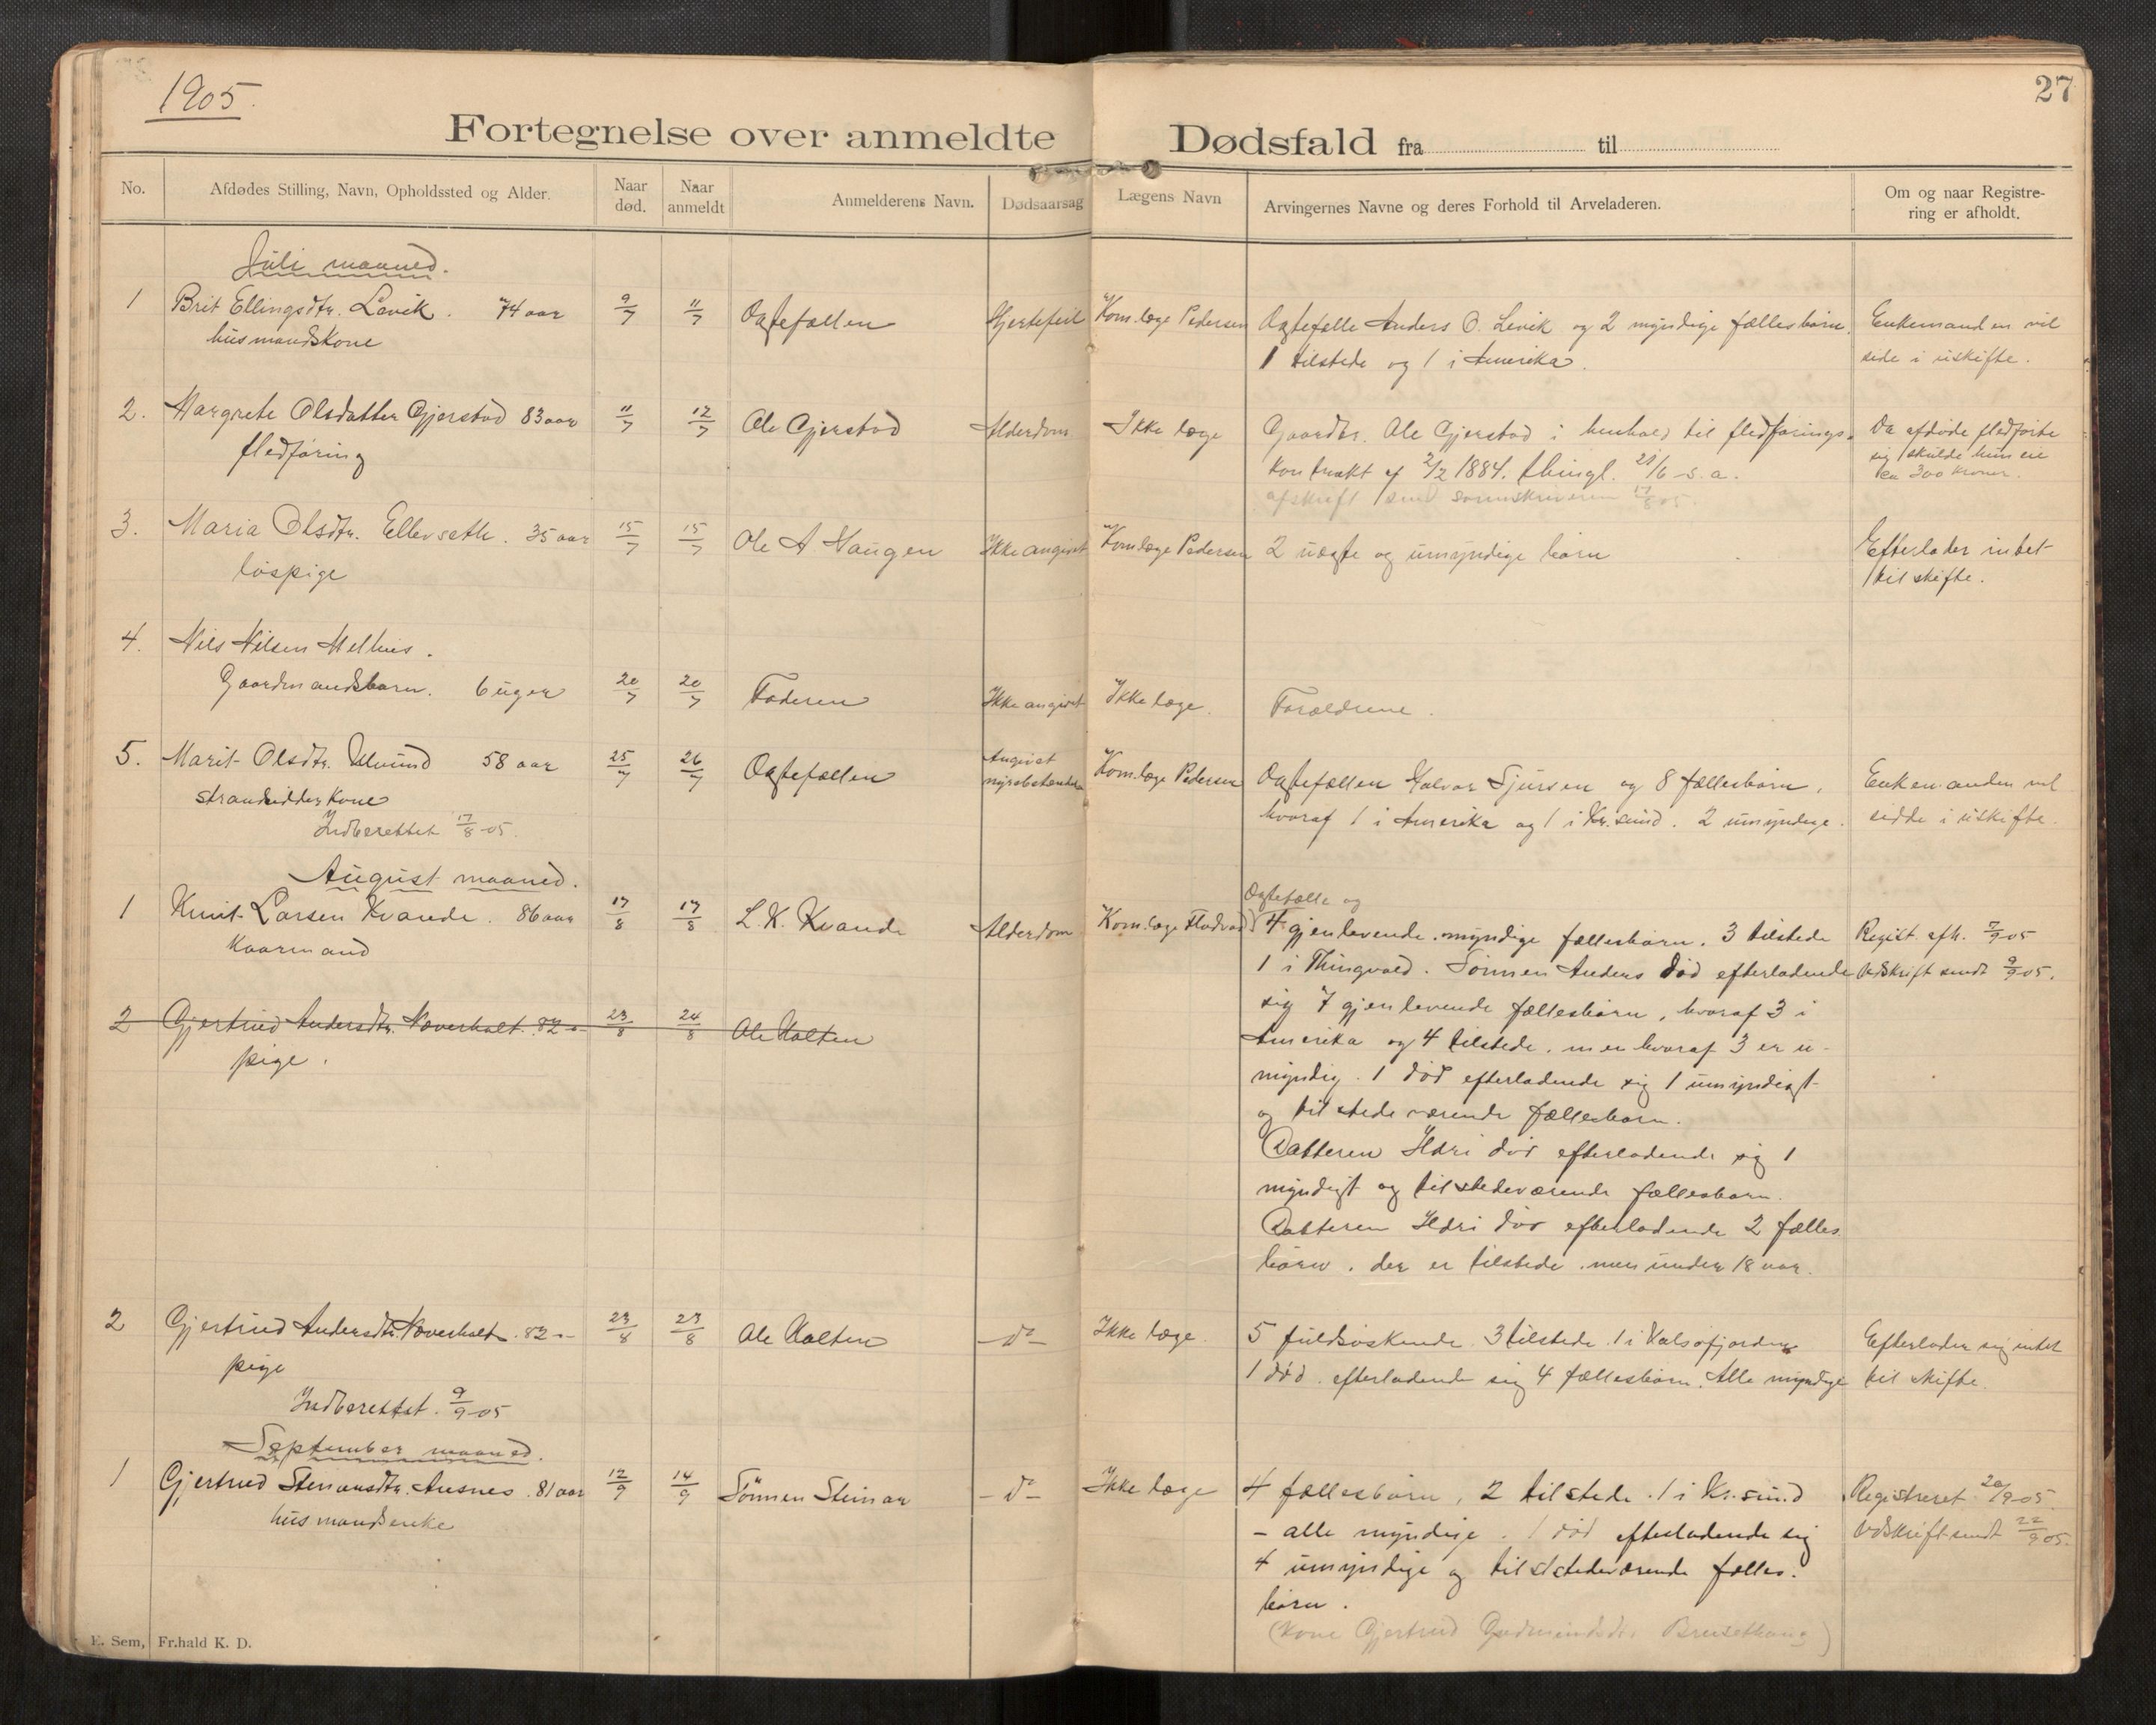 1905.
27
Fortegnelse over anmeldte Dødsfald fra til
No. Afdødes Stilling, Navn, Opholdssted og Alder. Naar død. Naar anmeldt Anmelderens Navn. Dødsaarsag Lægens Navn Arvingernes Navne og deres Forhold til Arveladeren. Om og naar Registrering er afholdt.
Juli maaned.
1 Brit Ellingsdtr. Levik. 74 aar 9/7 11/7 Ægtefællen Hjertefeil Kom.læge Pedersen Ægtefælle Anders O. Levik og 2 myndige fællesbørn. Enkemanden vil
husmandskone 1 tilstede og 1 i Amerika. side i uskifte.
2. Margrete Olsdatter Gjerstad 83 aar 11/7 12/7 Ole Gjerstad Alderdom Ikke læge Gaardbr. Ole Gjerstad i henhold til fledførings- Da afdøde fledførte
fledføring kontrakt af 2/2 1884. thingl. 21/6 s.a. sig skulde hun eie
ca 300 kroner.
afskrift sendt sorenskriveren 17/8 05.
3. Maria Olsdtr. Ellevseth. 35 aar 15/7 15/7 Ole A Haugen Ikke angivet Kom.læge Pedersen 2 uægte og umyndige børn Efterlader intet
løspige til skifte.
4. Nils Nilsen Melhus.
Gaardmandsbarn. 6 uger 20/7 20/7 Faderen Ikke angivet Ikke læge. Forældrene.
5. Marit Olsdtr. Ulvund 58 aar 25/7 26/7 Ægtefællen Angivet Kom.læge Pedersen Ægtefællen Halvor Sjursen og 8 fællesbørn, Enkemanden vil
strandsidderkone hvoraf 1 i Amerika og 1 i Kr.sund. 2 umyndige. sidde i uskifte.
Indberettet 17/8 05.
August maaned.
Ægtefælle og
1 Knut Larsen Kvande. 86 aar 17/8 17/8 L. K. Kvande Alderdom Kom.læge Flødvad 4 gjenlevende myndige fællesbørn. 3 tilstede Regist. afh. 7/9 05
Kaarmand 1 i Thingvold. Sønnen Anders død efterladende Udskrift sendt 9/9 05.
sig 7 gjenlevende fællesbørn, hvoraf 3 i
2 Gjertrud Andersdtr. Næverholt. 82 - 23/8 24/8 Ole Halten
Amerika og 4 tilstede. men hvoraf 3 er u-
pige.
myndig. 1 død efterladende sig 1 umyndigt
og tilstedeværende fællesbarn.
Datteren Ildri død efterladende sig 1
myndigt og tilstedeværende fællesbarn.
Datteren Ildri død efterladende 2 fælles
børn. der er tilstede men under 18 aar.
2 Gjertrud Andersdtr. Næverholt. 82 - 23/8 23/8 Ole Halten - do - Ikke læge. 5 fuldsøskende. 3 tilstede. 1 i Valsøfjorden Efterlader sig intet
pige 1 død. efterladende sig 4 fællesbørn. Alle myndige til skifte.
Indberettet. 9/9 05
September maaned.
1 Gjertrud Stenarsdtr. Aasnes. 81 aar 12/9 14/9 Sønnen Steinar - do - Ikke læge 4 fællesbørn, 2 tilstede. 1 i Kr.sund Registreret 20/9 05.
husmandsenke - alle myndige. 1 død efterladende sig Udskrift sendt 22/9 05.
4 umyndige og tilstedeværende fælles-
børn.
(kone Gjertrud Gudmundsdtr.
E. Sem, Fr.hald K. D.